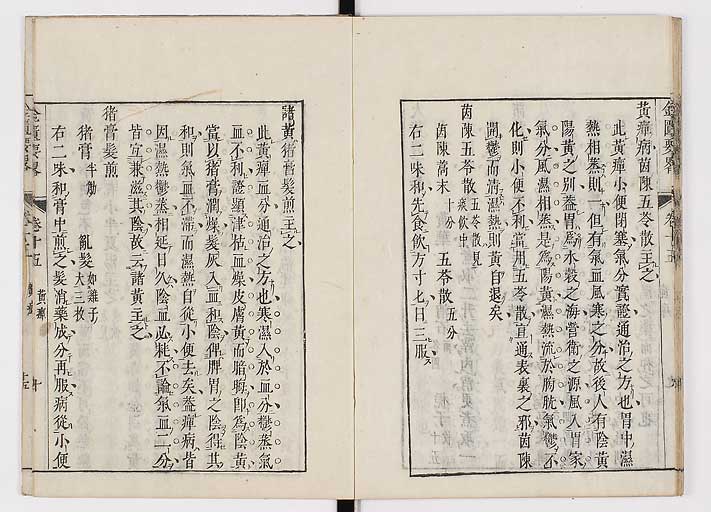 金匱要畧 卷十五
黃疸病茵陳五苓散主之
此黃癉小便閉塞氣分實證通治之方也胃中濕
熱相蒸則一但有氣血風寒之分故後人有陰黃
陽黃之別益胃爲水穀之海營衛之源風入胃家
氣分風濕相蒸是爲陽黃濕熱流於膀胱氣鬱不
化則小便不利當用五苓散宣通表裏之邪茵陳
開鬱而清濕熱則黃自退矣
茵陳五苓散
茵陳蒿末 十分 五苓散 五分
右二味和先食飲方寸七日三服
諸黃猪膏髮煎主之
此黃癉血分通治之方也寒濕入於血分鬱蒸氣
血不利證顯津枯血燥皮膚黃而暗晦即爲陰黃
當以猪膏潤燥髮灰入血和陰俾脾胃之陰得其
和則氣血不滯而濕熱自從小便去矣益癉病皆
因濕熱鬱蒸相延日久陰血必耗不論氣血二分
皆宜兼滋其陰故云諸黃主之
猪膏髮煎
猪膏 半觔 亂髮 如雞子大三枚
右二味和膏中煎之髮消藥成分再服病從小便
卷十五 黃癉